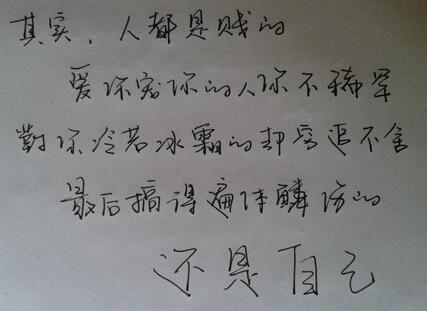 其实，人都是贱的
爱你宠你的人你不稀罕
對你冷若冰霜的却穷追不舍
最后搞得遍体鳞伤的
还是自己